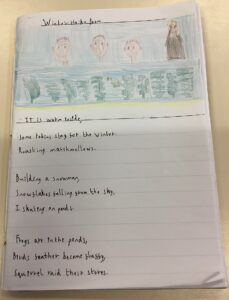 Winter Haiku Poem
It is warm inside,
Some babies sleep for the winter.
Roasting marshmallows.
Building a snowman,
Snowflakes falling from the sky,
I skating on ponds.
Frogs are in the ponds,
Birds feather become fluffy,
Squirrel raid there stores.